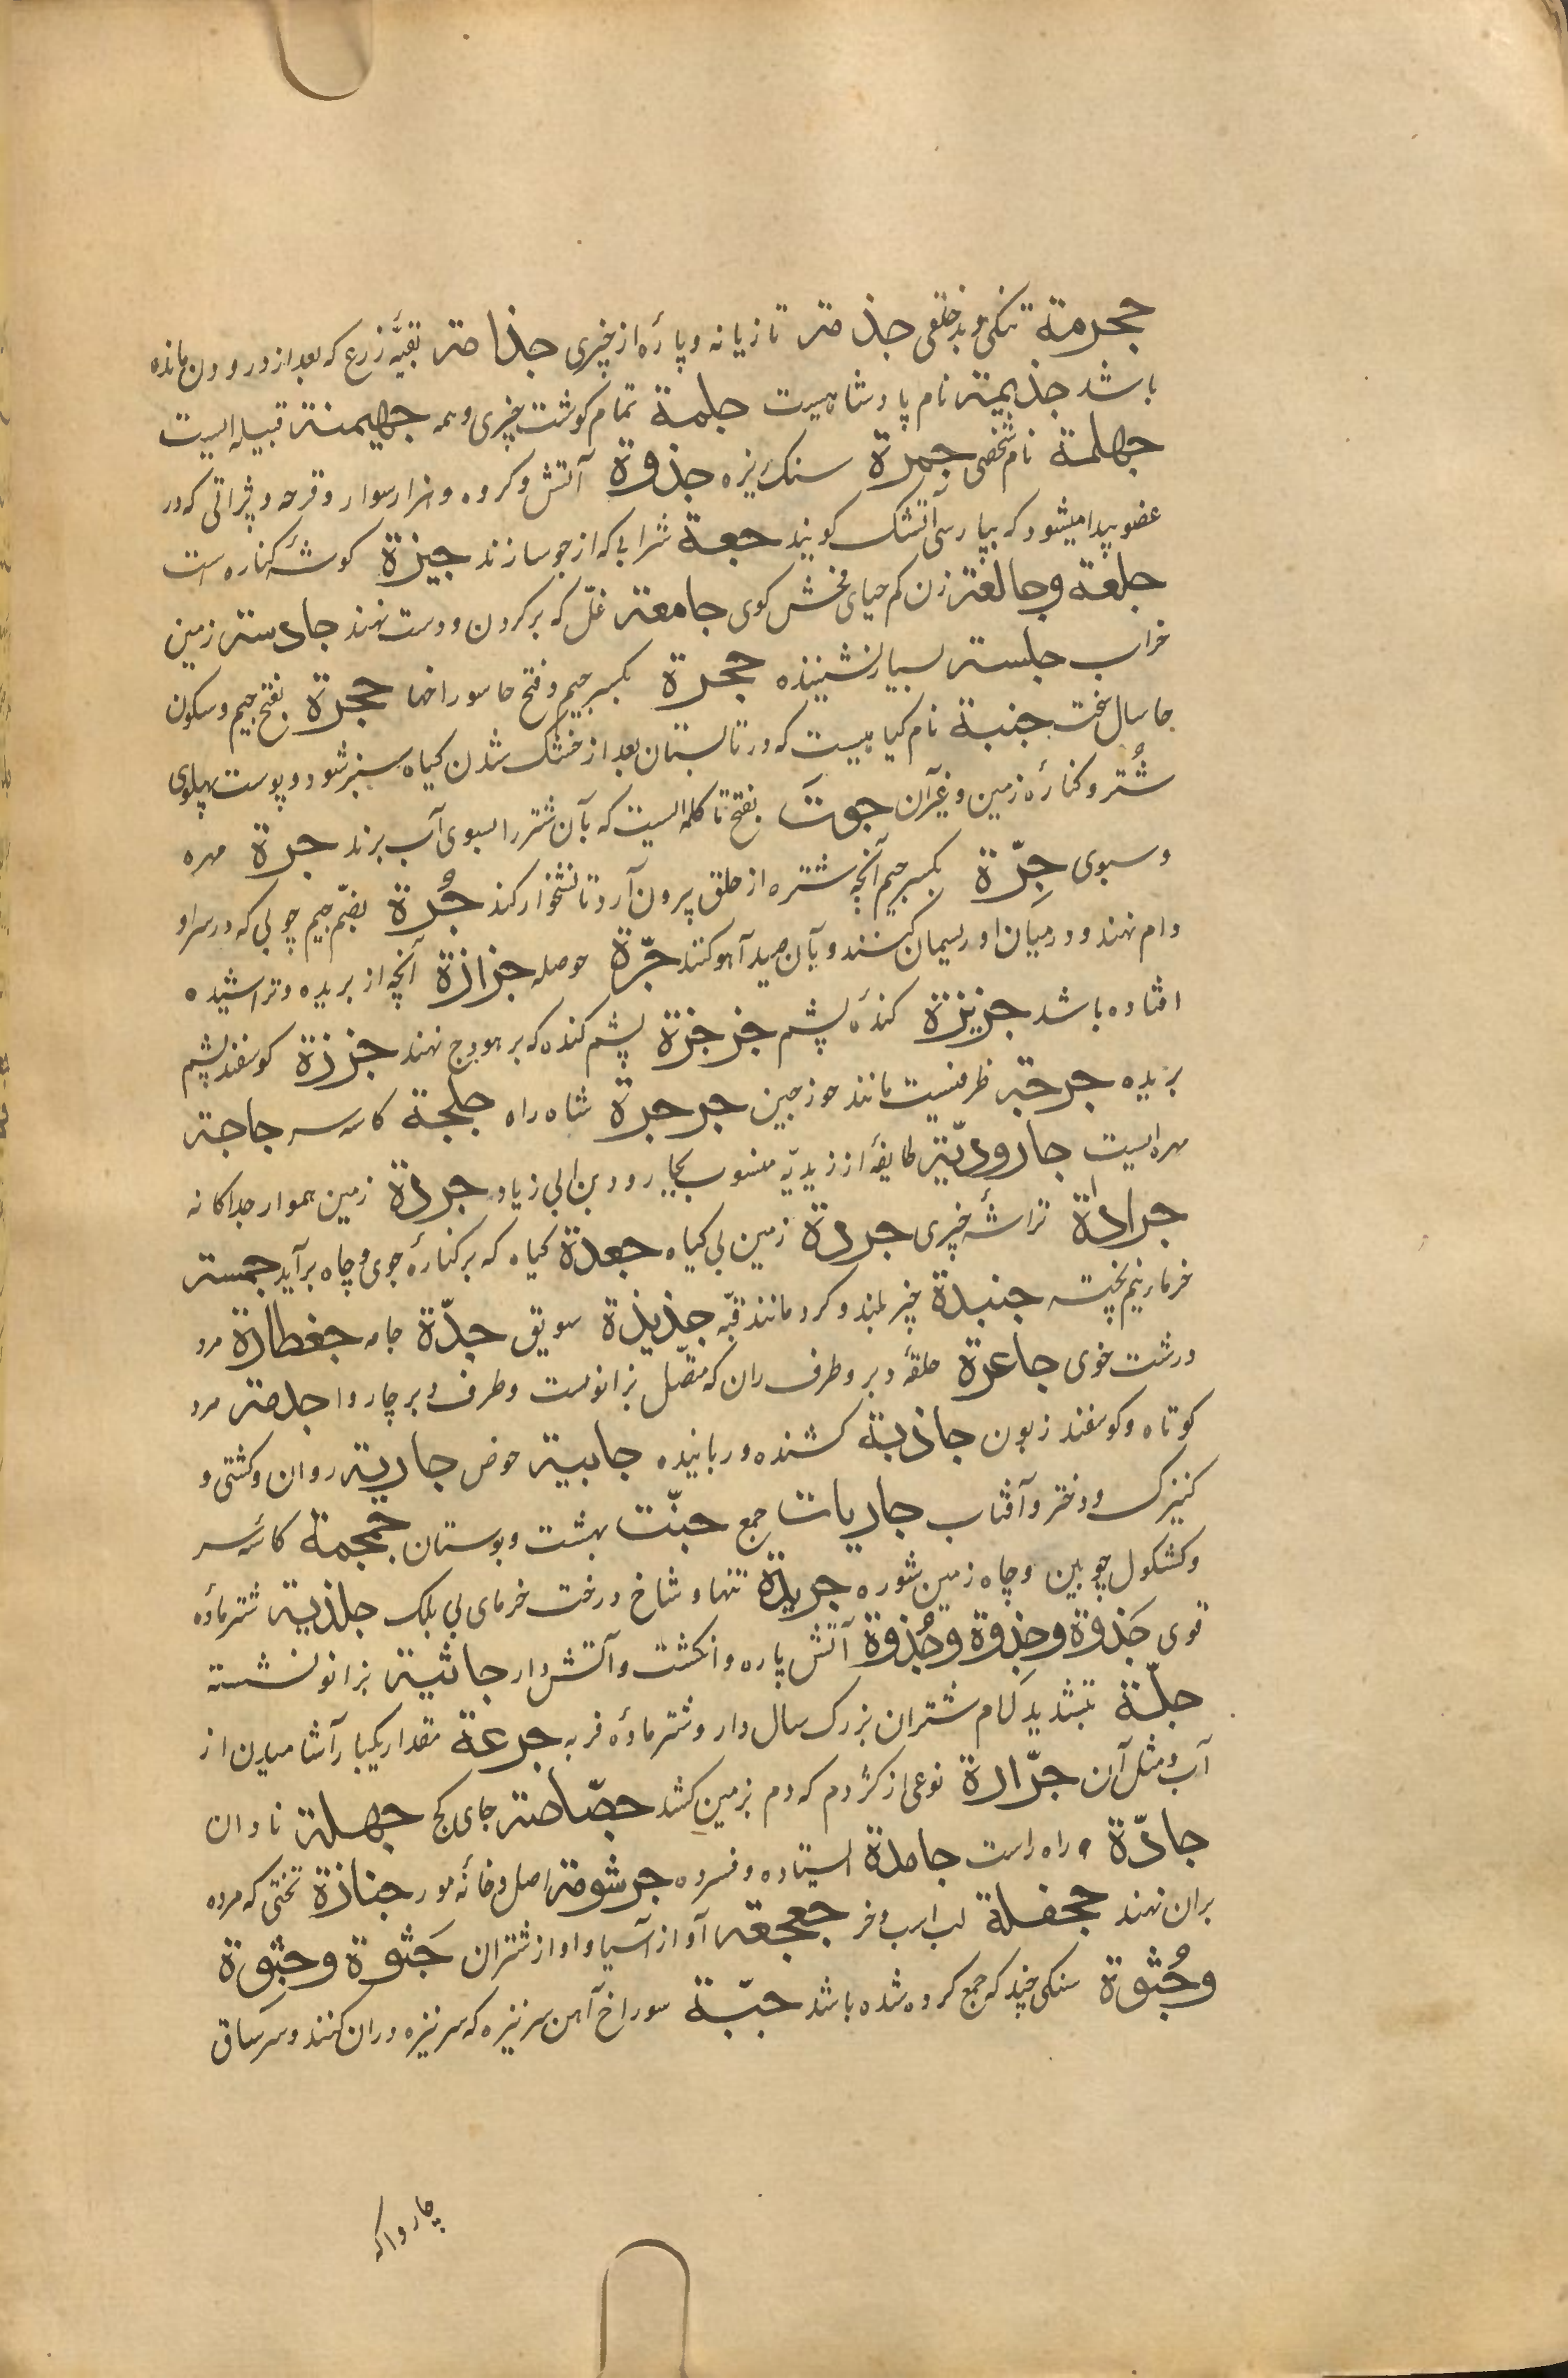 جحرمة تنکی و بدخلقی جذمة تازیانه و پارهٔ از چیزی جذامة بقیّهٔ زرع که بعد از درودن مانده
باشد جذیمة نام پادشاهیست جلمة تمام کوشت چیزی و همه جهیمنة قبیله ایست
جهلمة نام شخصی جمرة سنک ریزه جذوة آتش و کروه و هزار سوار و قرحه و بثراتی که در
عضو پیدا میشود که بپارسی آتشک کویند جعة شرابی که از جو سازند جیزة کوشهٔ کناره است
جلعة و جالعة زن کم حیای فحش کوی جامعة غلّ که بر کردن و دست نهند جادسة زمین
خراب جلسة بسیار نشیننده جحرة بکسر جیم و فتح حا سوراخها جحرة بفتح جیم و سکون
حا سال سخت جنبة نام کیاهیست که در تابستان بعد از خشک شدن کیاه سبز شود و پوست پهلوی
شُتر و کنارهٔ زمین و غیرآن جوتَ بفتح تا کلمه ایست که بآن شتر را بسوی آب برند جرة مهره
و سبوی جِرّة بکسر جیم آنچه شتره از حلق بیرون آرد تا نشخوار کند جُرة بضمّ جیم چوبی که در سر او
دام نهند و در میان او ریسمان کنند و بآن صید آهو کنند جرّة حوصله جزازة آنچه از بریده و تراشیده
افتاده باشد جزیزة کندهٔ پشم جزجزة پشم کنده که بر هودج نهند جززة کوسفند پشم
بریده جرحبة ظرفیست مانند حوز جبن جرجرة شاه راه جلجة کاسه سر جاجة
مهره ایست جارودیّة طایفهٔ از زیدیّه منسوب بجارود بن ابی زیاد جردة زمین هموار جداکانه
جرادة تراشهٔ چیزی جردة زمین بی کیاه جعدة کیاه که بر کنارهٔ جوی و چاه برآید جمسة
خرما نیم پخته جنبدة چیز بلند و کرد مانند قبّه جذیذة سویق جدّة جامه جغطارة مرد
درشت خوی جاعرة حلقهٔ دبر و طرف ران که متصّل بزانوست و طرف دبر چاروا جدمة مرد
کوتاه و کوسفند زبون جاذبة کشنده و رباینده جابیة حوض جاریة روان و کشتی و
کنیزک و دختر و آفتاب جاریات جمع جنّت بهشت و بوستان جمجمة کاسهٔ سر
و کشکول چوبین و چاه زمین شوره جریدة تنها و شاخ درخت خرمای بی بلک جلذیة شتر مادهٔ
قوی جَذوة و جِذوة و جُذوة آتش پاره و انکشت و آتش دار جاثیة بزانو نشسته
جلّة بتشدید لام شتران بزرک سال دار و شتر مادهٔ فربه جرعة مقدار یکبار آشامیدن از
آب و مثل آن جرّارة نوعی از کژدم که دم بزمین کشد جصّاصة جای کج جهلة نادان
جادّة راه راست جامدة ایستاده و فسرده جرثومة اصل و خانهٔ مور جنازة تختی که مرده
بران نهند جحفلة لب اسب و خر جعجعه آواز آسیا و اواز شتران جَثوة و جِثوة
و جُثوة سنکی چند که جمع کرده شده باشد جبّة سوراخ آهن سر نیزه که سر نیزه دران کنند و سر ساق
چارواکه